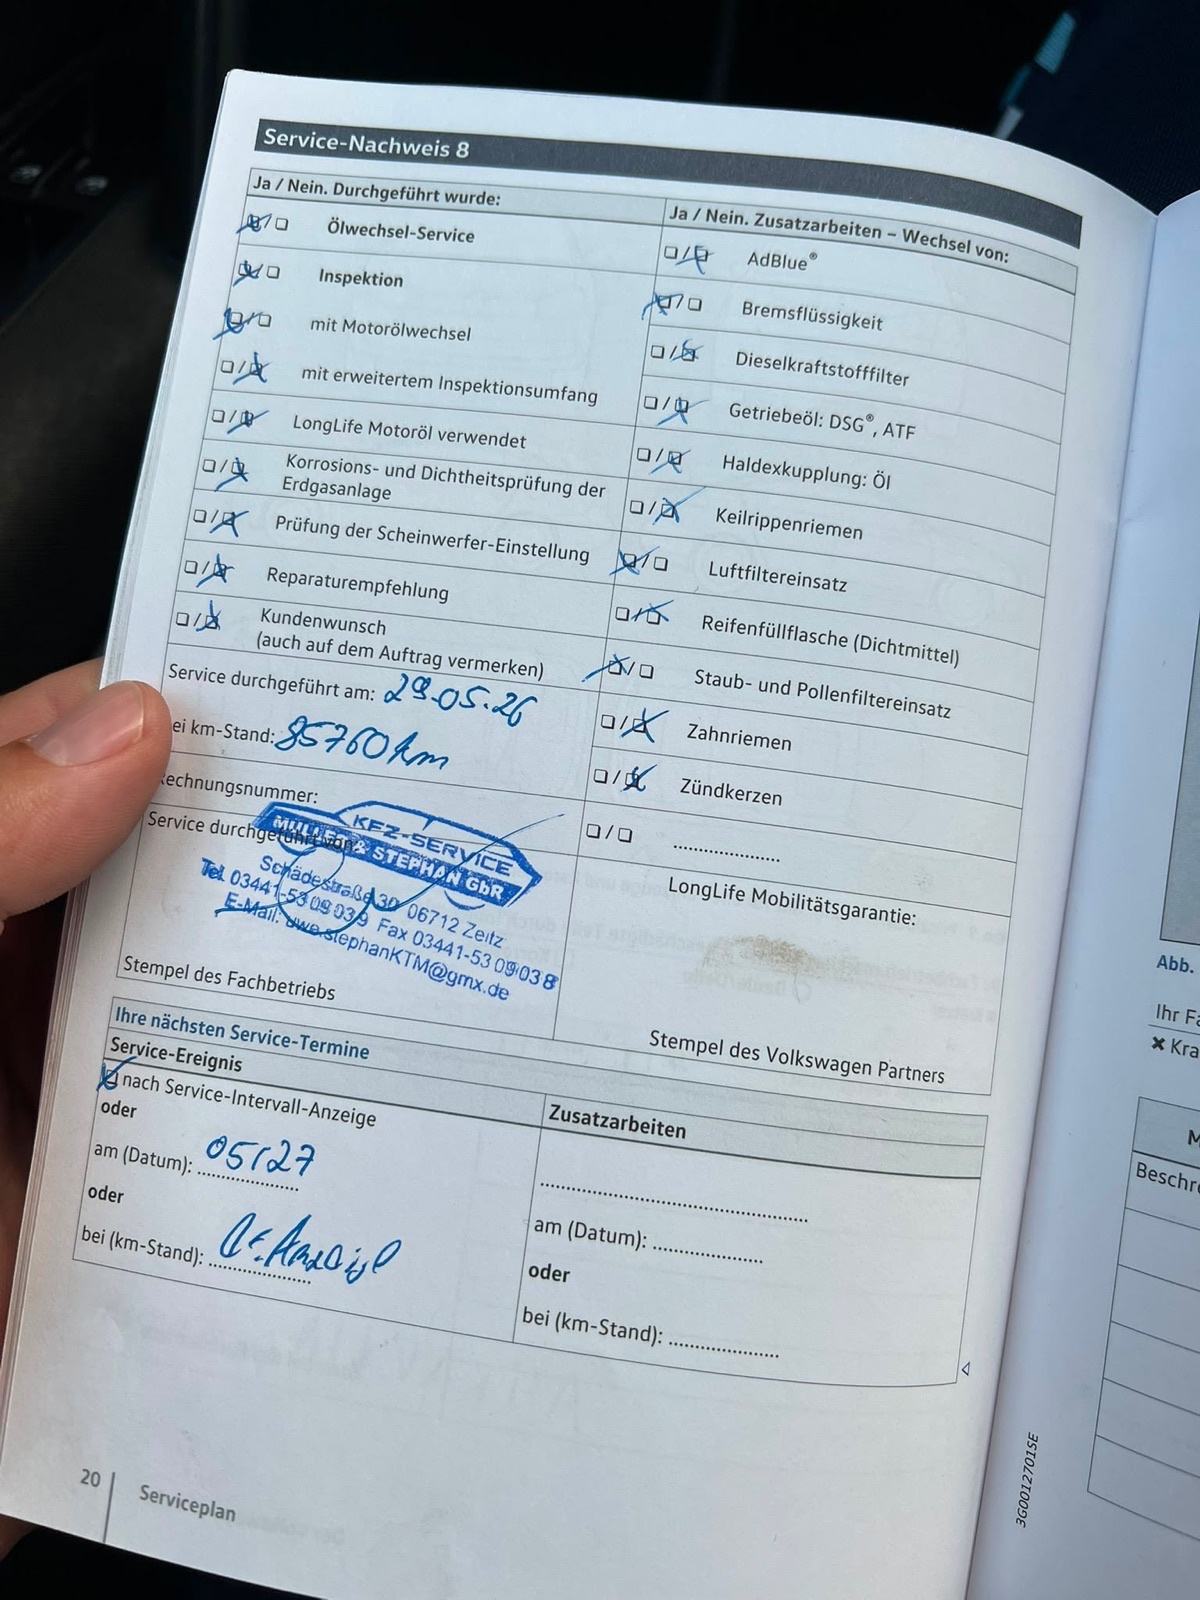 Service-Nachweis 8
Ja / Nein. Durchgeführt wurde:
Ölwechsel-Service
Inspektion
mit Motorölwechsel
mit erweitertem Inspektionsumfang
LongLife Motoröl verwendet
Korrosions- und Dichtheitsprüfung der
Erdgasanlage
Prüfung der Scheinwerfer-Einstellung
Reparaturempfehlung
Kundenwunsch
(auch auf dem Auftrag vermerken)
Service durchgeführt am: 29.05.26
ei km-Stand: 85760 km
echnungsnummer:
Service durchgeführt von
KFZ-SERVICE
& STEPHAN GbR
Schädestraße 30 06712 Zeitz
Tel. 03441-53 09 039 Fax 03441-53 09 038
E-Mail: uwe.stephanKTM@gmx.de
Stempel des Fachbetriebs
Ja / Nein. Zusatzarbeiten – Wechsel von:
AdBlue®
Bremsflüssigkeit
Dieselkraftstofffilter
Getriebeöl: DSG®, ATF
Haldexkupplung: Öl
Keilrippenriemen
Luftfiltereinsatz
Reifenfüllflasche (Dichtmittel)
Staub- und Pollenfiltereinsatz
Zahnriemen
Zündkerzen
LongLife Mobilitätsgarantie:
Stempel des Volkswagen Partners
Ihre nächsten Service-Termine
Service-Ereignis
nach Service-Intervall-Anzeige
oder
am (Datum): 05/27
oder
bei (km-Stand):
Zusatzarbeiten
am (Datum):
oder
bei (km-Stand):
20
Serviceplan
3G0012701SE
Abb.
Ihr Fa
Kra
M
Beschre